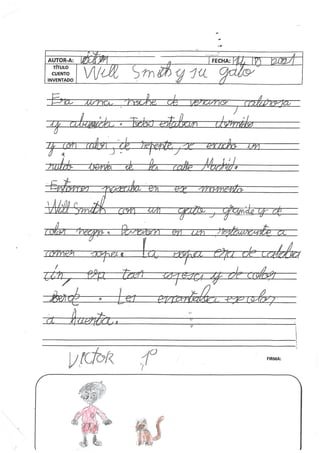 AUTOR-A: Víctor FECHA: 14 2021
TÍTULO CUENTO INVENTADO Will Smith y su gato
Era una noche de verano, calurosa
y aburrida. Todos estaban dormidos
y con calor, de repente, se escucho un
ruido venia de la calle Madrid.
Entonces pasaba en ese momento
Will Smith con un gato, grande y de
color negro. Pararon en un restaurante a
comer sopa. La sopa era de calaba
cín, era tan espesa y de color
berde. Les encantaba ese olor
a huerta.
VICTOR P
FIRMA: